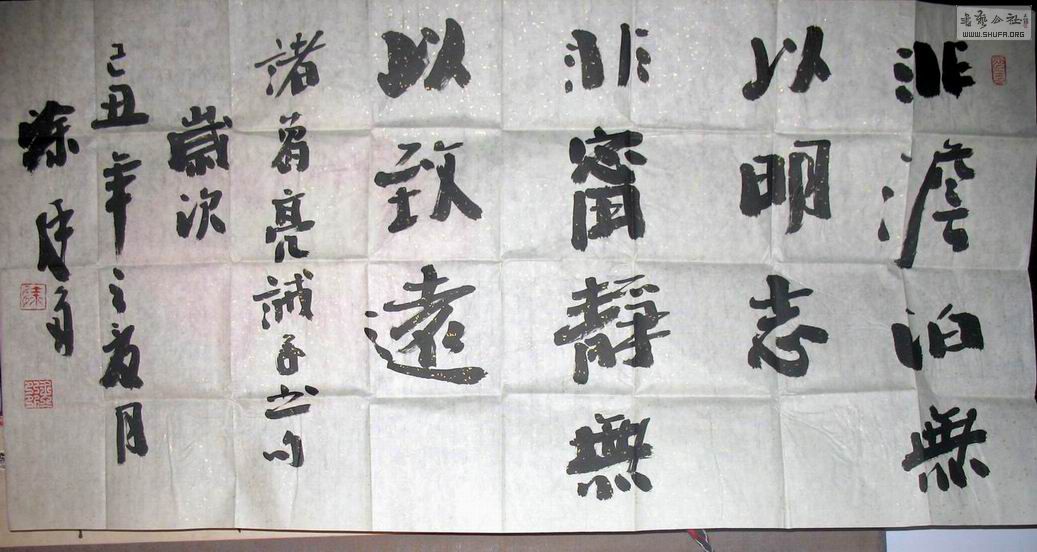 非澹泊無
以明志
非甯靜無
以致遠
諸葛亮誡子书句
歲次
己丑年之夏月
书艺公社
WWW.SHUFA.ORG